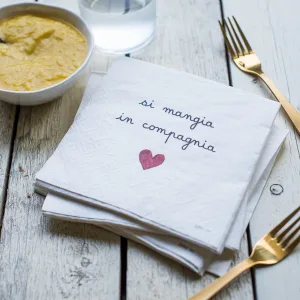 si mangia
in compagnia